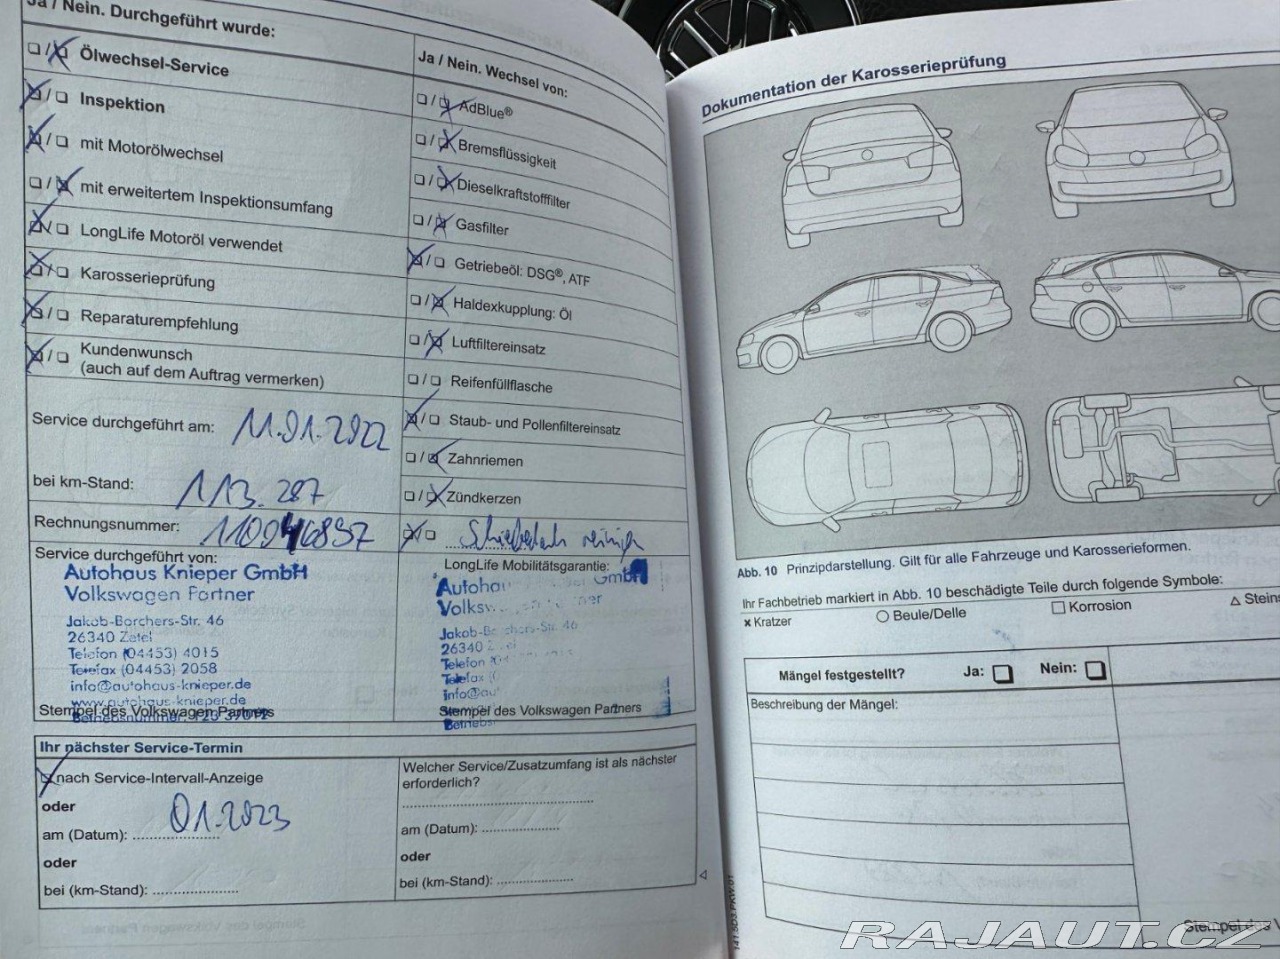 Ja / Nein. Durchgeführt wurde:
❏ / ☒ Ölwechsel-Service
☒ / ❏ Inspektion
☒ / ❏ mit Motorölwechsel
❏ / ☒ mit erweitertem Inspektionsumfang
☒ / ❏ LongLife Motoröl verwendet
☒ / ❏ Karosserieprüfung
☒ / ❏ Reparaturempfehlung
☒ / ❏ Kundenwunsch
(auch auf dem Auftrag vermerken)
Service durchgeführt am: 11.01.2022
bei km-Stand: 113.287
Rechnungsnummer:
Service durchgeführt von:
Autohaus Knieper GmbH
Volkswagen Partner
Jakob-Borchers-Str. 46
26340 Zetel
Telefon (04453) 4015
Telefax (04453) 2058
info@autohaus-knieper.de
www.autohaus-knieper.de
Betriebsnummer:
Stempel des Volkswagen Partners
Ja / Nein. Wechsel von:
❏ / ☒ AdBlue®
❏ / ☒ Bremsflüssigkeit
❏ / ☒ Dieselkraftstofffilter
❏ / ☒ Gasfilter
☒ / ❏ Getriebeöl: DSG®, ATF
❏ / ☒ Haldexkupplung: Öl
❏ / ☒ Luftfiltereinsatz
❏ / ❏ Reifenfüllflasche
☒ / ❏ Staub- und Pollenfiltereinsatz
❏ / ☒ Zahnriemen
❏ / ☒ Zündkerzen
☒ / ❏ Schiebedach
LongLife Mobilitätsgarantie:
GmbH
Jakob-B
26340
Telefon
Telefax
Stempel des Volkswagen Partners
Ihr nächster Service-Termin
☒ nach Service-Intervall-Anzeige
oder
01.2023
am (Datum):
oder
bei (km-Stand):
Welcher Service/Zusatzumfang ist als nächster
erforderlich?
am (Datum):
oder
bei (km-Stand):
Dokumentation der Karosserieprüfung
Abb. 10 Prinzipdarstellung. Gilt für alle Fahrzeuge und Karosserieformen.
Ihr Fachbetrieb markiert in Abb. 10 beschädigte Teile durch folgende Symbole:
× Kratzer ○ Beule/Delle □ Korrosion △ Steins
Mängel festgestellt? Ja: ❏ Nein: ❏
Beschreibung der Mängel:
Stempel des V
RAJAUT.CZ